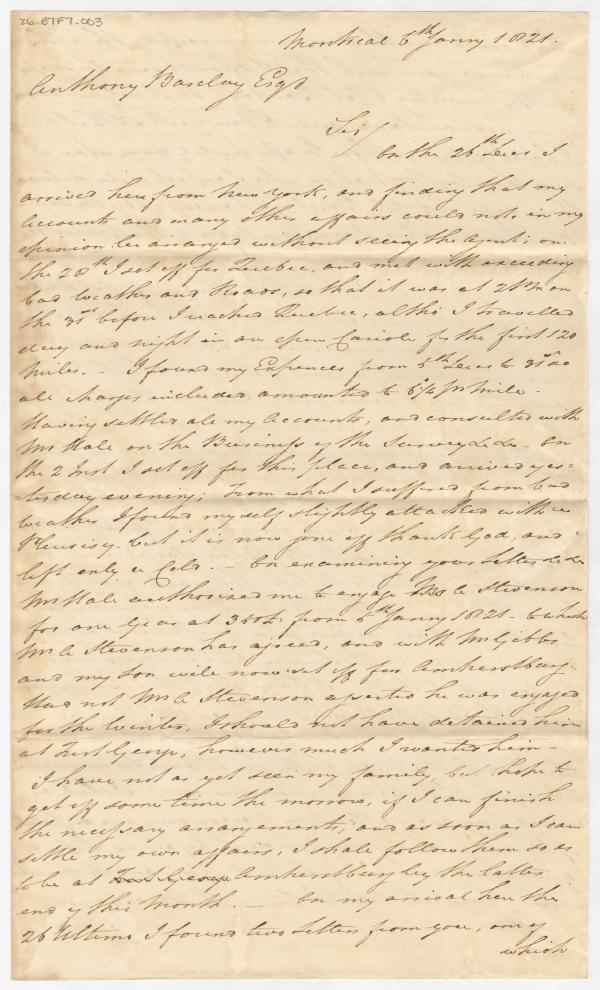 26-B7F7-003
Montreal 6th Janry 1821.
Anthony Barclay Esqr
Sir/
On the 26th Decr I
arrived here from New York, and finding that my
accounts and many other affairs could not, in my
opinion be arranged without seeing the Agent; on
the 28th I set off for Quebec, and met with exceeding
bad weather and Roads, so that it was at 2 on
the 31st before I reached Quebec, altho I travelled
day and night in an open Cariole for the first 120
miles. - I found my Expences from 5th Decr to 31st do
all charges included, amounted to pr Mile -
Having settled all my Accounts, and consulted with
Mr Hale on the Business of the Survey &c &c - On
the 2 Inst I set off for this place, and arrived yes=
=terday evening; From what I suffered from bad
weather I found myself slightly attacked with a
Pleurisy. but it is now gone off thank God, and
left only a Cold. - On examining your Letter &c &c
Mr Hale authorized me to engage A Stevenson
for one year at from 5th Janry 1821 - to which
Mr A Stevenson has agreed, and with Mr Gibbs
and my son will now set off for Amherstburg.
Had not Mr A Stevenson asserted he was engaged
for the Winter, I should not have detained him
at Fort George, however much I wanted him -
I have not as yet seen my family, but hope to
get off some time the morrow, if I can finish
the necessary arrangements; and as soon as I can
settle my own affairs, I shall follow them so as
to be at Fort George Amherstburg by the latter
end of this Month. - On my arrival here the
26 Ultimo I found two Letters from you, one of
which